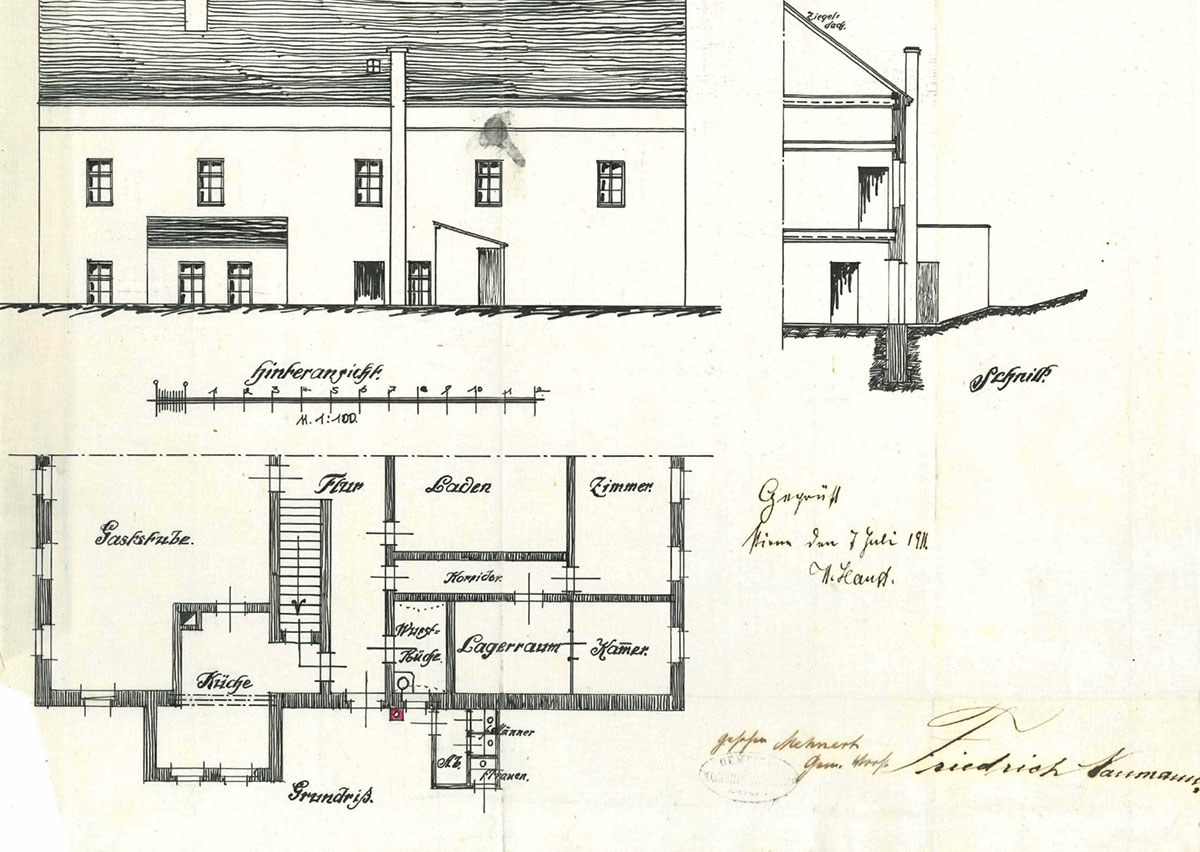 Ziegel-
dach.
Hinteransicht.
1 2 3 4 5 6 7 8 9 10 11 12.
M. 1:100.
Schnitt.
Flur
Laden
Zimmer.
Gaststube.
Korridor.
Wurst-
Küche.
Lagerraum
Kam̅er.
Küche
f. Männer
Ab.
f. Frauen.
Grundriß.
Geprüft
den 7 Juli 1911.
gesehen Mehnert
Gem. Vorst.
Friedrich Naumann.